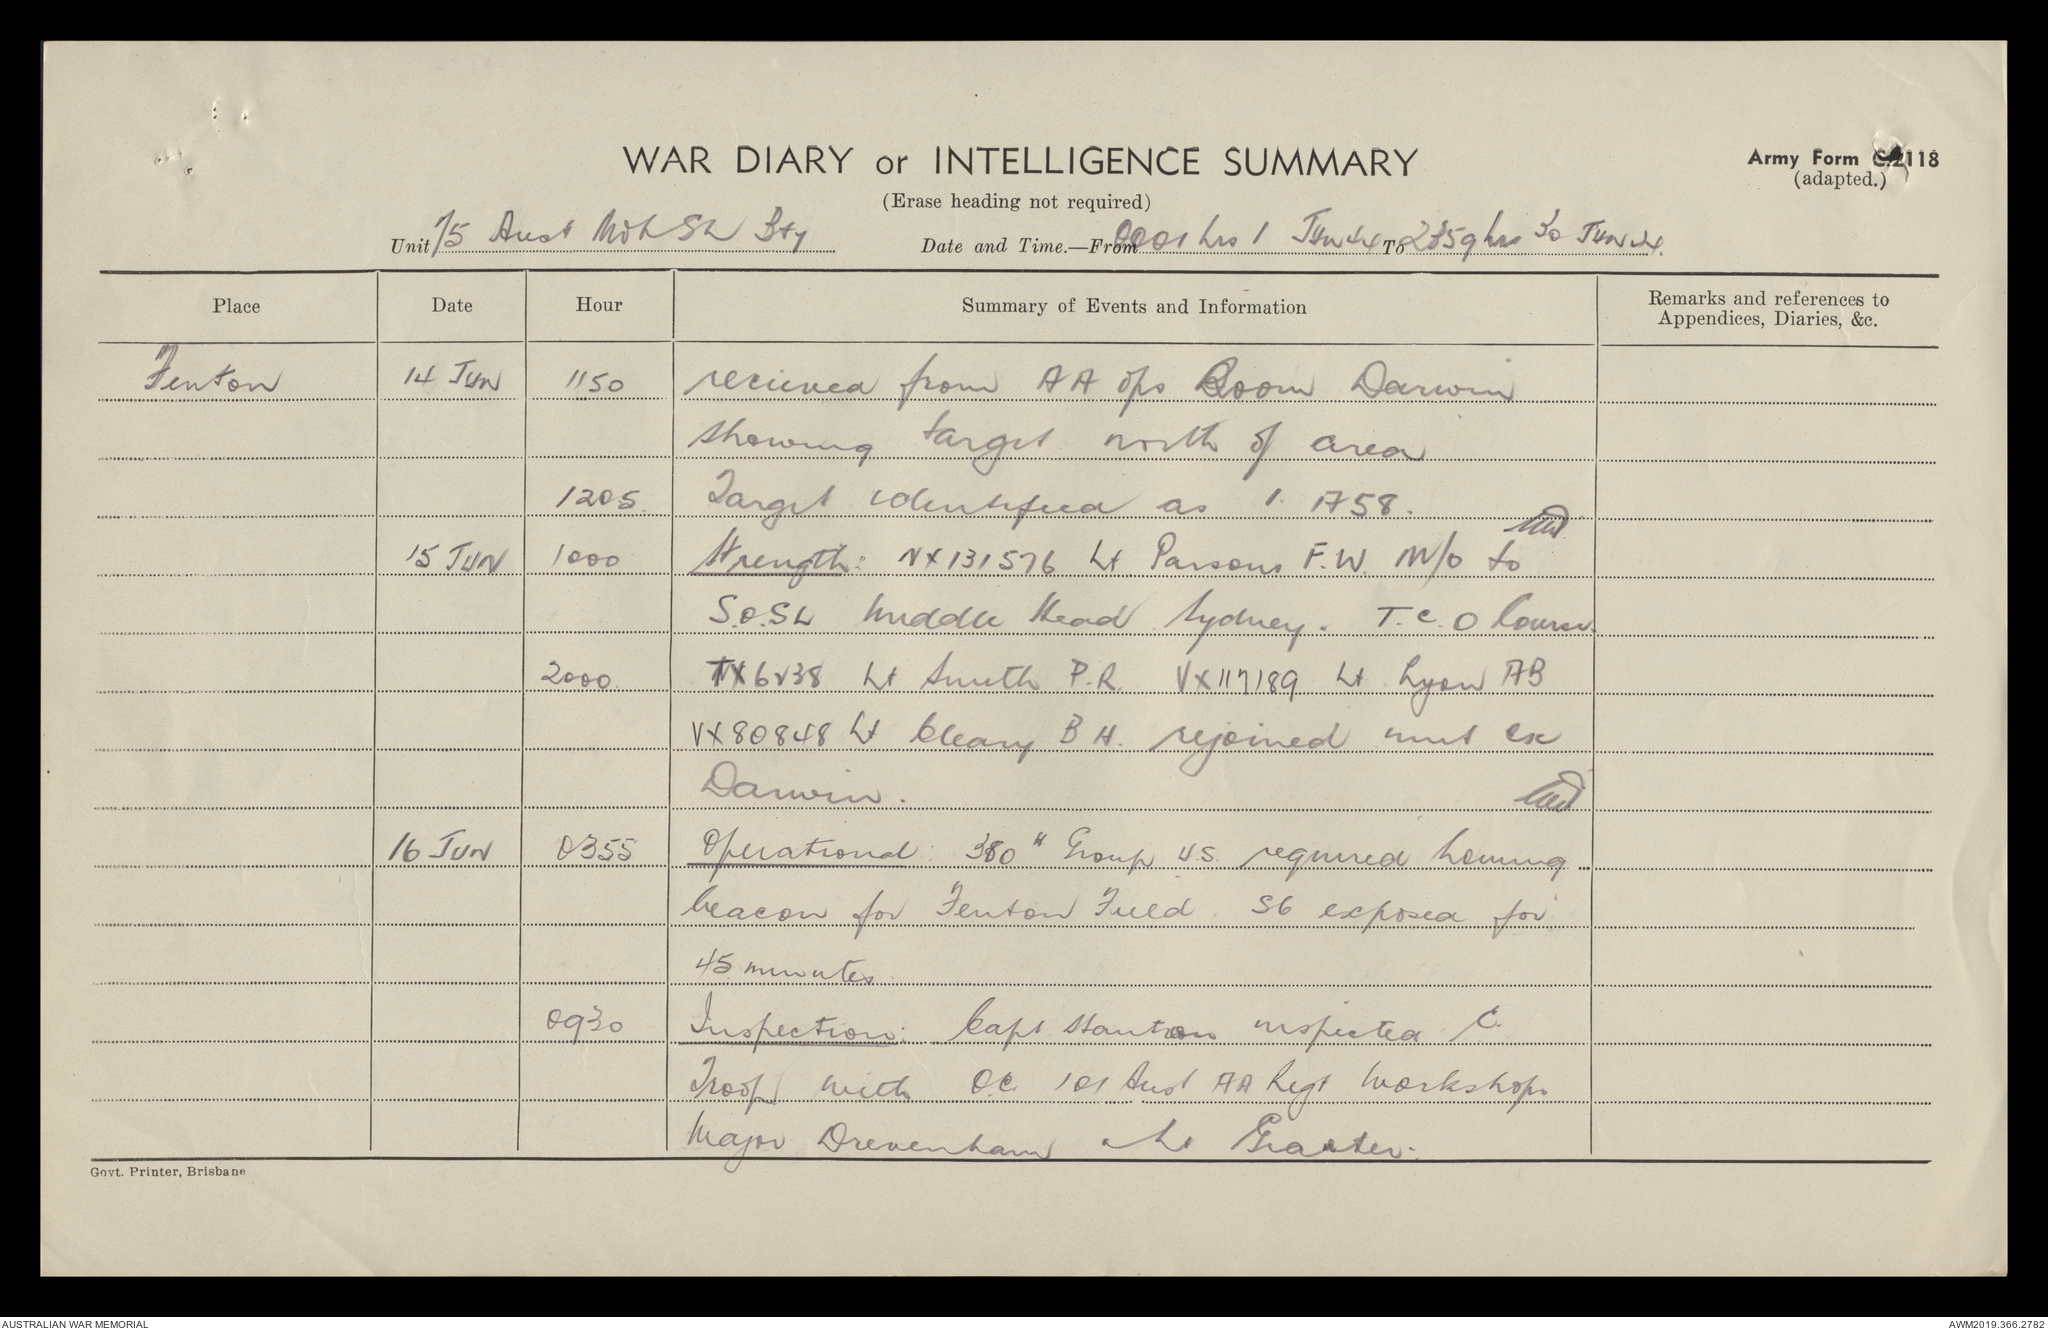 WAR DIARY or INTELLIGENCE SUMMARY
Army Form C.2118
(adapted.)
(Erase heading not required)
Unit 75 Aust Mob SL Bty Date and Time.—From 0001 hrs 1 Jun 44 To 2359 hrs 30 Jun 44.
Place Date Hour Summary of Events and Information Remarks and references to
Appendices, Diaries, &c.
Fenton 14 JUN 1150 recieved from AA Ops Room Darwin
showing target north of area
1205. Target identified as 1. A58.
15 JUN 1000 Strength: NX131576 Lt Parsons F.W. M/o to
S.O.SL Middle Head Sydney. T.C.O Course.
2000. TX6238 Lt Smith P.R. VX117189 Lt Lyon AB
VX80848 Lt Cleary B H. rejoined unit ex
Darwin.
16 JUN 0355 Operational: 380" Group U.S. required homing
beacon for Fenton Field. S6 exposed for
45 minutes.
0930 Inspection: Capt Stanton inspected C.
Troop with OC. 101 Aust AA Regt Workshops
Major Drevenham Lt
Govt. Printer, Brisbane
AUSTRALIAN WAR MEMORIAL AWM2019.366.2782